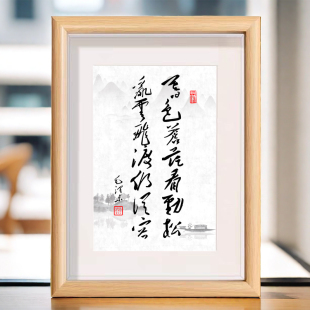 暮色苍茫看劲松
乱云飞渡仍从容
毛泽东